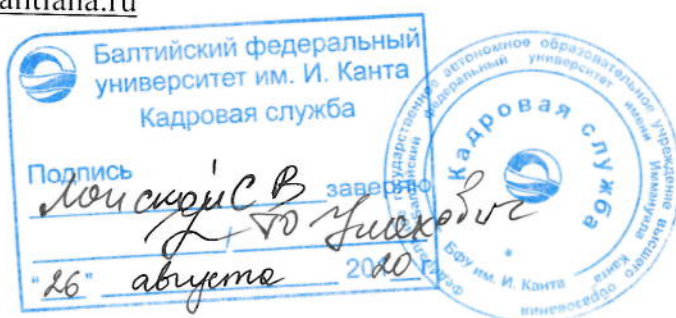 antiana.ru
Балтийский федеральный
университет им. И. Канта
Кадровая служба
Подпись
заверяю
"26" августа 2020
федеральное государственное автономное образовательное учреждение высшего образования
Балтийский федеральный университет имени Иммануила Канта
Кадровая служба
БФУ им. И. Канта